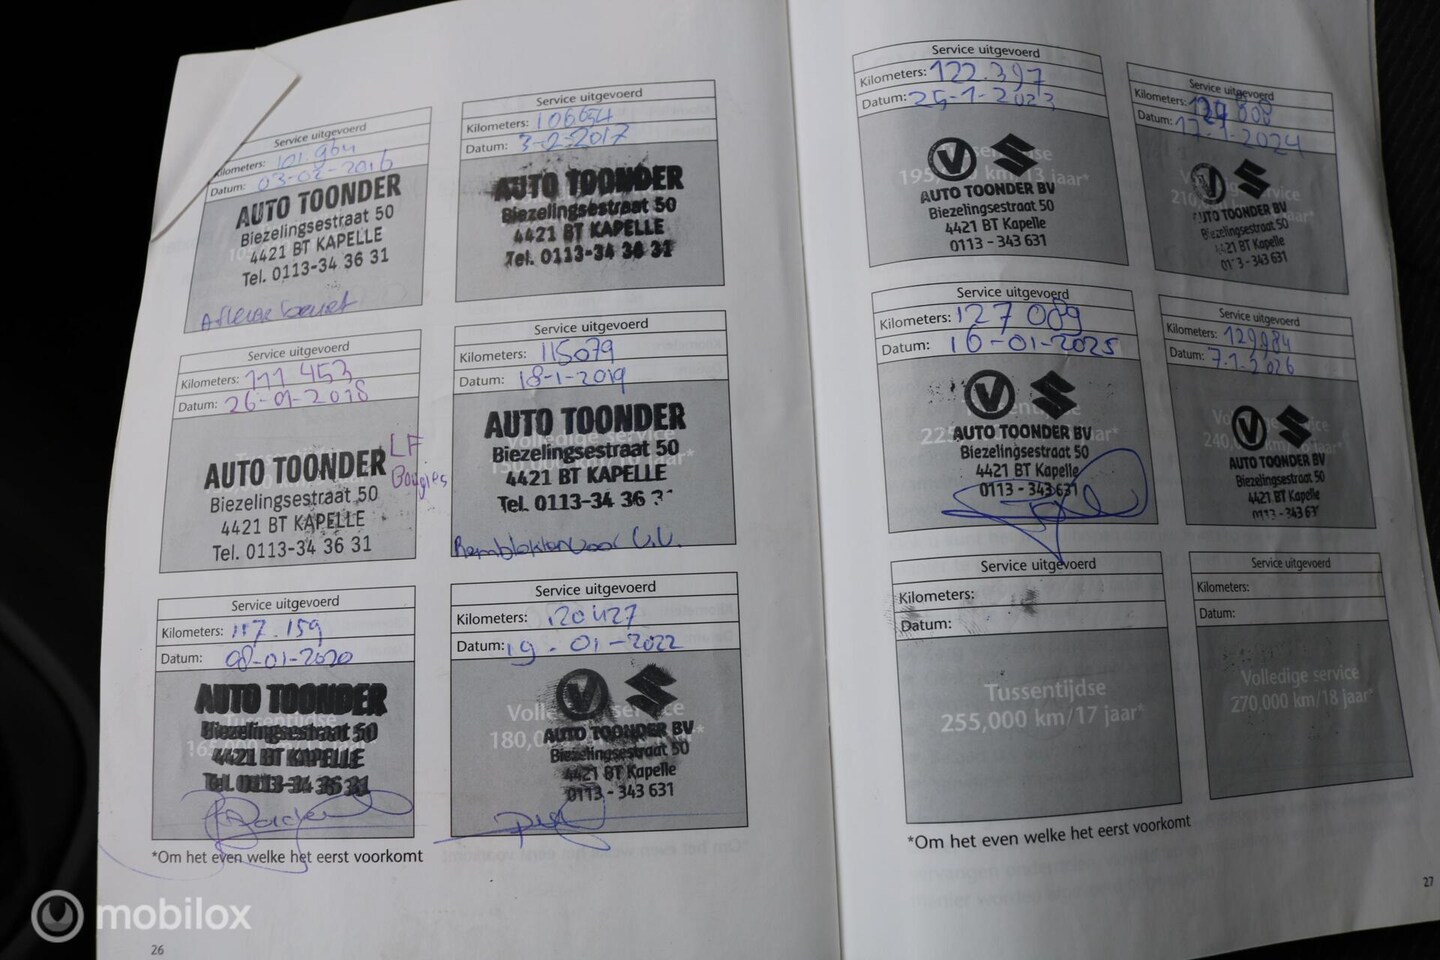 Service uitgevoerd
Kilometers: 101964
Datum: 03-02-2016
AUTO TOONDER
Biezelingsestraat 50
4421 BT KAPELLE
Tel. 0113-34 36 31
Service uitgevoerd
Kilometers: 106654
Datum: 3-2-2017
AUTO TOONDER
Biezelingsestraat 50
4421 BT KAPELLE
Tel. 0113-34 36 31
Service uitgevoerd
Kilometers: 111 453
Datum: 26-01-2018
LF
Bougies
AUTO TOONDER
Biezelingsestraat 50
4421 BT KAPELLE
Tel. 0113-34 36 31
Service uitgevoerd
Kilometers: 115079
Datum: 18-1-2019
Volledige service
AUTO TOONDER
Biezelingsestraat 50
4421 BT KAPELLE
Tel. 0113-34 36 3
Remblokken voor V.V.
Service uitgevoerd
Kilometers: 117.159
Datum: 08-01-2020
AUTO TOONDER
Biezelingsestraat 50
4421 BT KAPELLE
Tel. 0113-34 36 31
Service uitgevoerd
Kilometers: 120427
Datum: 19-01-2022
Volledige service
180,000
AUTO TOONDER BV
Biezelingsestraat 50
4421 BT Kapelle
0113 - 343 631
*Om het even welke het eerst voorkomt
26
Service uitgevoerd
Kilometers: 122.397
Datum: 25-1-2023
Tussentijdse
195,000 km/13 jaar*
AUTO TOONDER BV
Biezelingsestraat 50
4421 BT Kapelle
0113 - 343 631
Service uitgevoerd
Kilometers: 124 808
Datum: 17-1-2024
AUTO TOONDER BV
Biezelingsestraat 50
4421 BT Kapelle
0113-343 631
Service uitgevoerd
Kilometers: 127 089
Datum: 16-01-2025
Tussentijdse
AUTO TOONDER BV
Biezelingsestraat 50
4421 BT Kapelle
0113 - 343 631
Service uitgevoerd
Kilometers: 129984
Datum: 7-1-2026
AUTO TOONDER BV
Biezelingsestraat 50
4421 BT Kapelle
0113 - 343 631
Service uitgevoerd
Kilometers:
Datum:
Tussentijdse
255,000 km/17 jaar*
Service uitgevoerd
Kilometers:
Datum:
Volledige service
270,000 km/18 jaar*
*Om het even welke het eerst voorkomt
27
mobilox